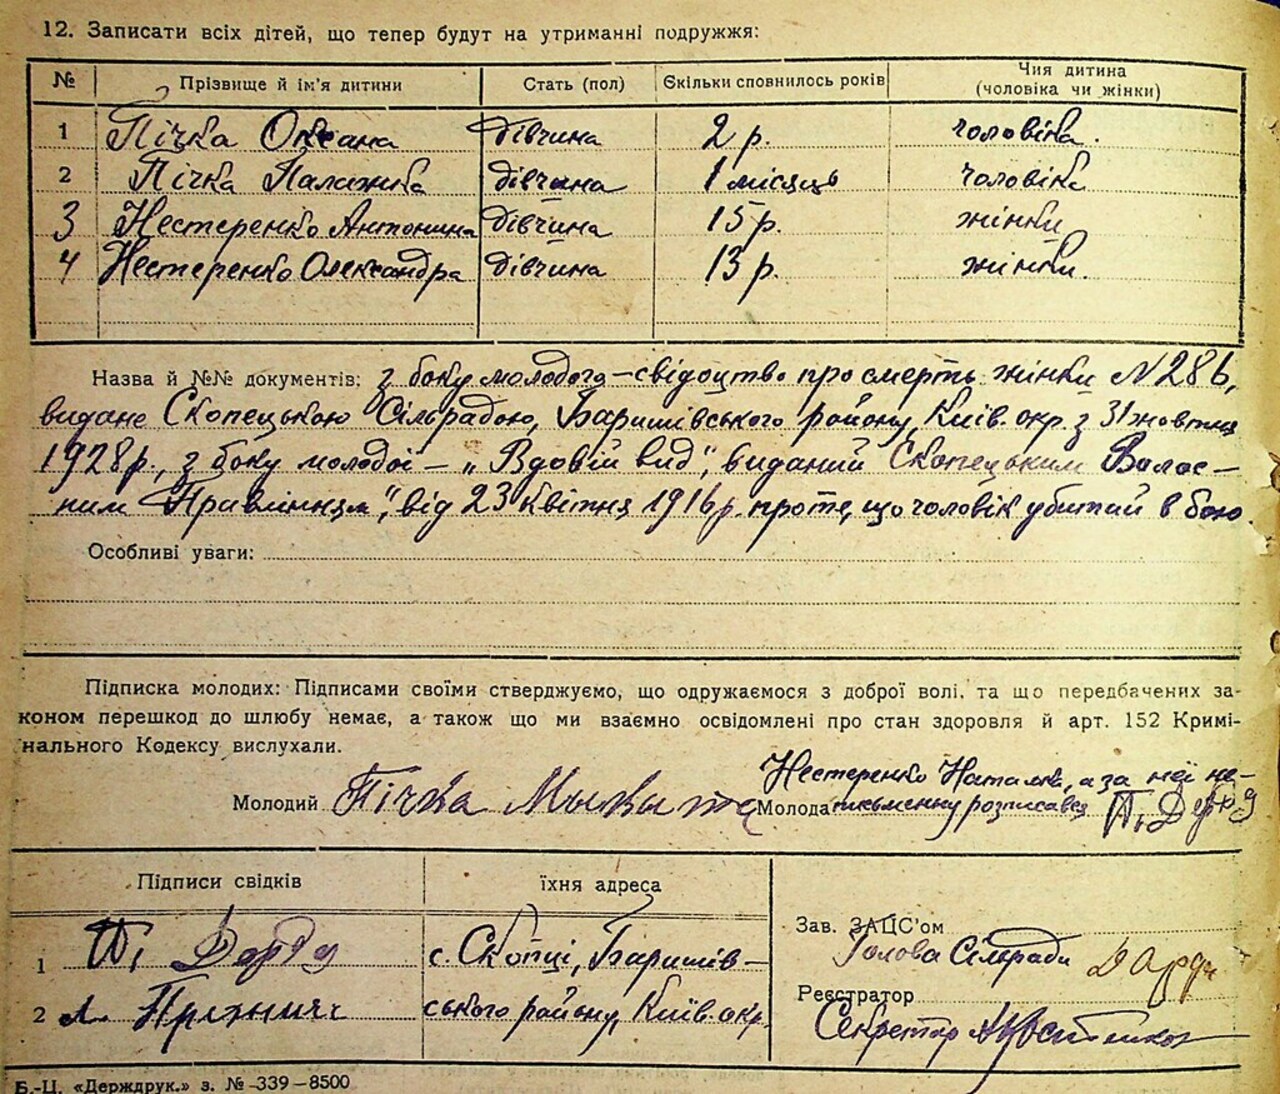 12. Записати всіх дітей, що тепер будуть на утриманні подружжя:
№ Прізвище й ім'я дитини Стать (пол) Скільки сповнилось років Чия дитина (чоловіка чи жінки)
1 Пічка Оксана дівчина 2 р. чоловіка.
2 Пічка Палажка дівчина 1 місяць чоловіка
3 Нестеренко Антонина дівчина 15 р. жінки
4 Нестеренко Олександра дівчина 13 р. жінки.
Назва й №№ документів: з боку молодого – свідоцтво про смерть жінки N 286,
видане Скопецькою Сільрадою, Баришівського району, Київ. окр. з 31 жовтня
1928 р., з боку молодої – „Вдовій вид", виданий Скопецьким Волос-
ним Правлінням", від 23 Квітня 1916 р. про те, що чоловік убитий в бою.
Особливі уваги:
Підписка молодих: Підписами своїми стверджуємо, що одружаємося з доброї волі, та що передбачених за-
коном перешкод до шлюбу немає, а також що ми взаємно освідомлені про стан здоровля й арт. 152 Кримі-
нального Кодексу вислухали.
Нестеренко Наталка, а за неї не-
Молодий Пічка Мыкыта Молода письменну розписавсь П. Дардя
Підписи свідків їхня адреса
Зав. ЗАЦС'ом
1 П. Дардя с. Скопці, Баришів-
Голова Сільради Дардя
2 ського району, Київ. окр.
Реєстратор
Секретар
Б.-Ц. «Держдрук.» з. № 339—8500